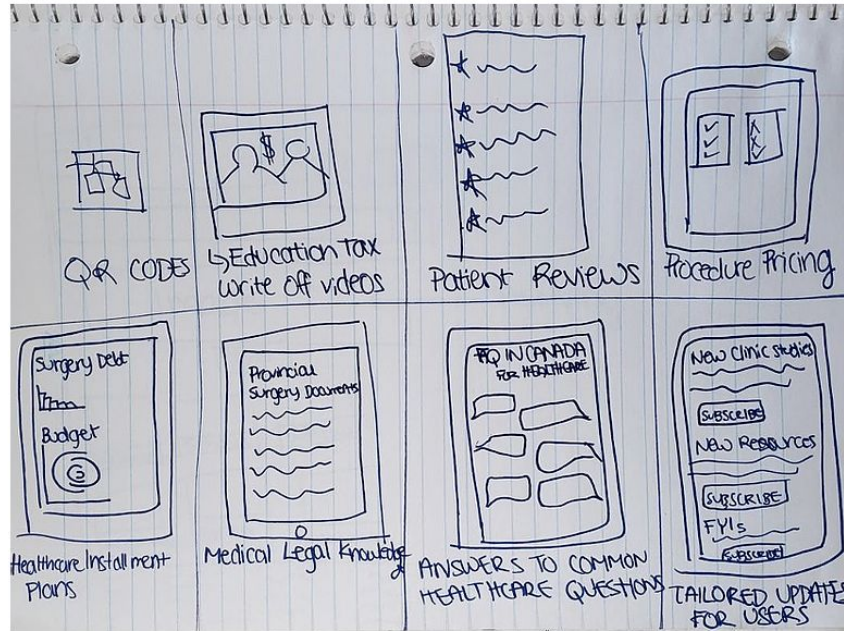 QR CODES
$
↳Education Tax
write off videos
Patient Reviews
Procedure Pricing
Surgery Debt
Budget
Healthcare Installment
Plans
Provincial
Surgery Documents
Medical Legal Knowledge
FAQ IN CANADA
FOR HEALTHCARE
ANSWERS TO COMMON
HEALTHCARE QUESTIONS
New Clinic Studies
SUBSCRIBE
New Resources
SUBSCRIBE
FYIs
SUBSCRIBE
TAILORED UPDATES
FOR USERS